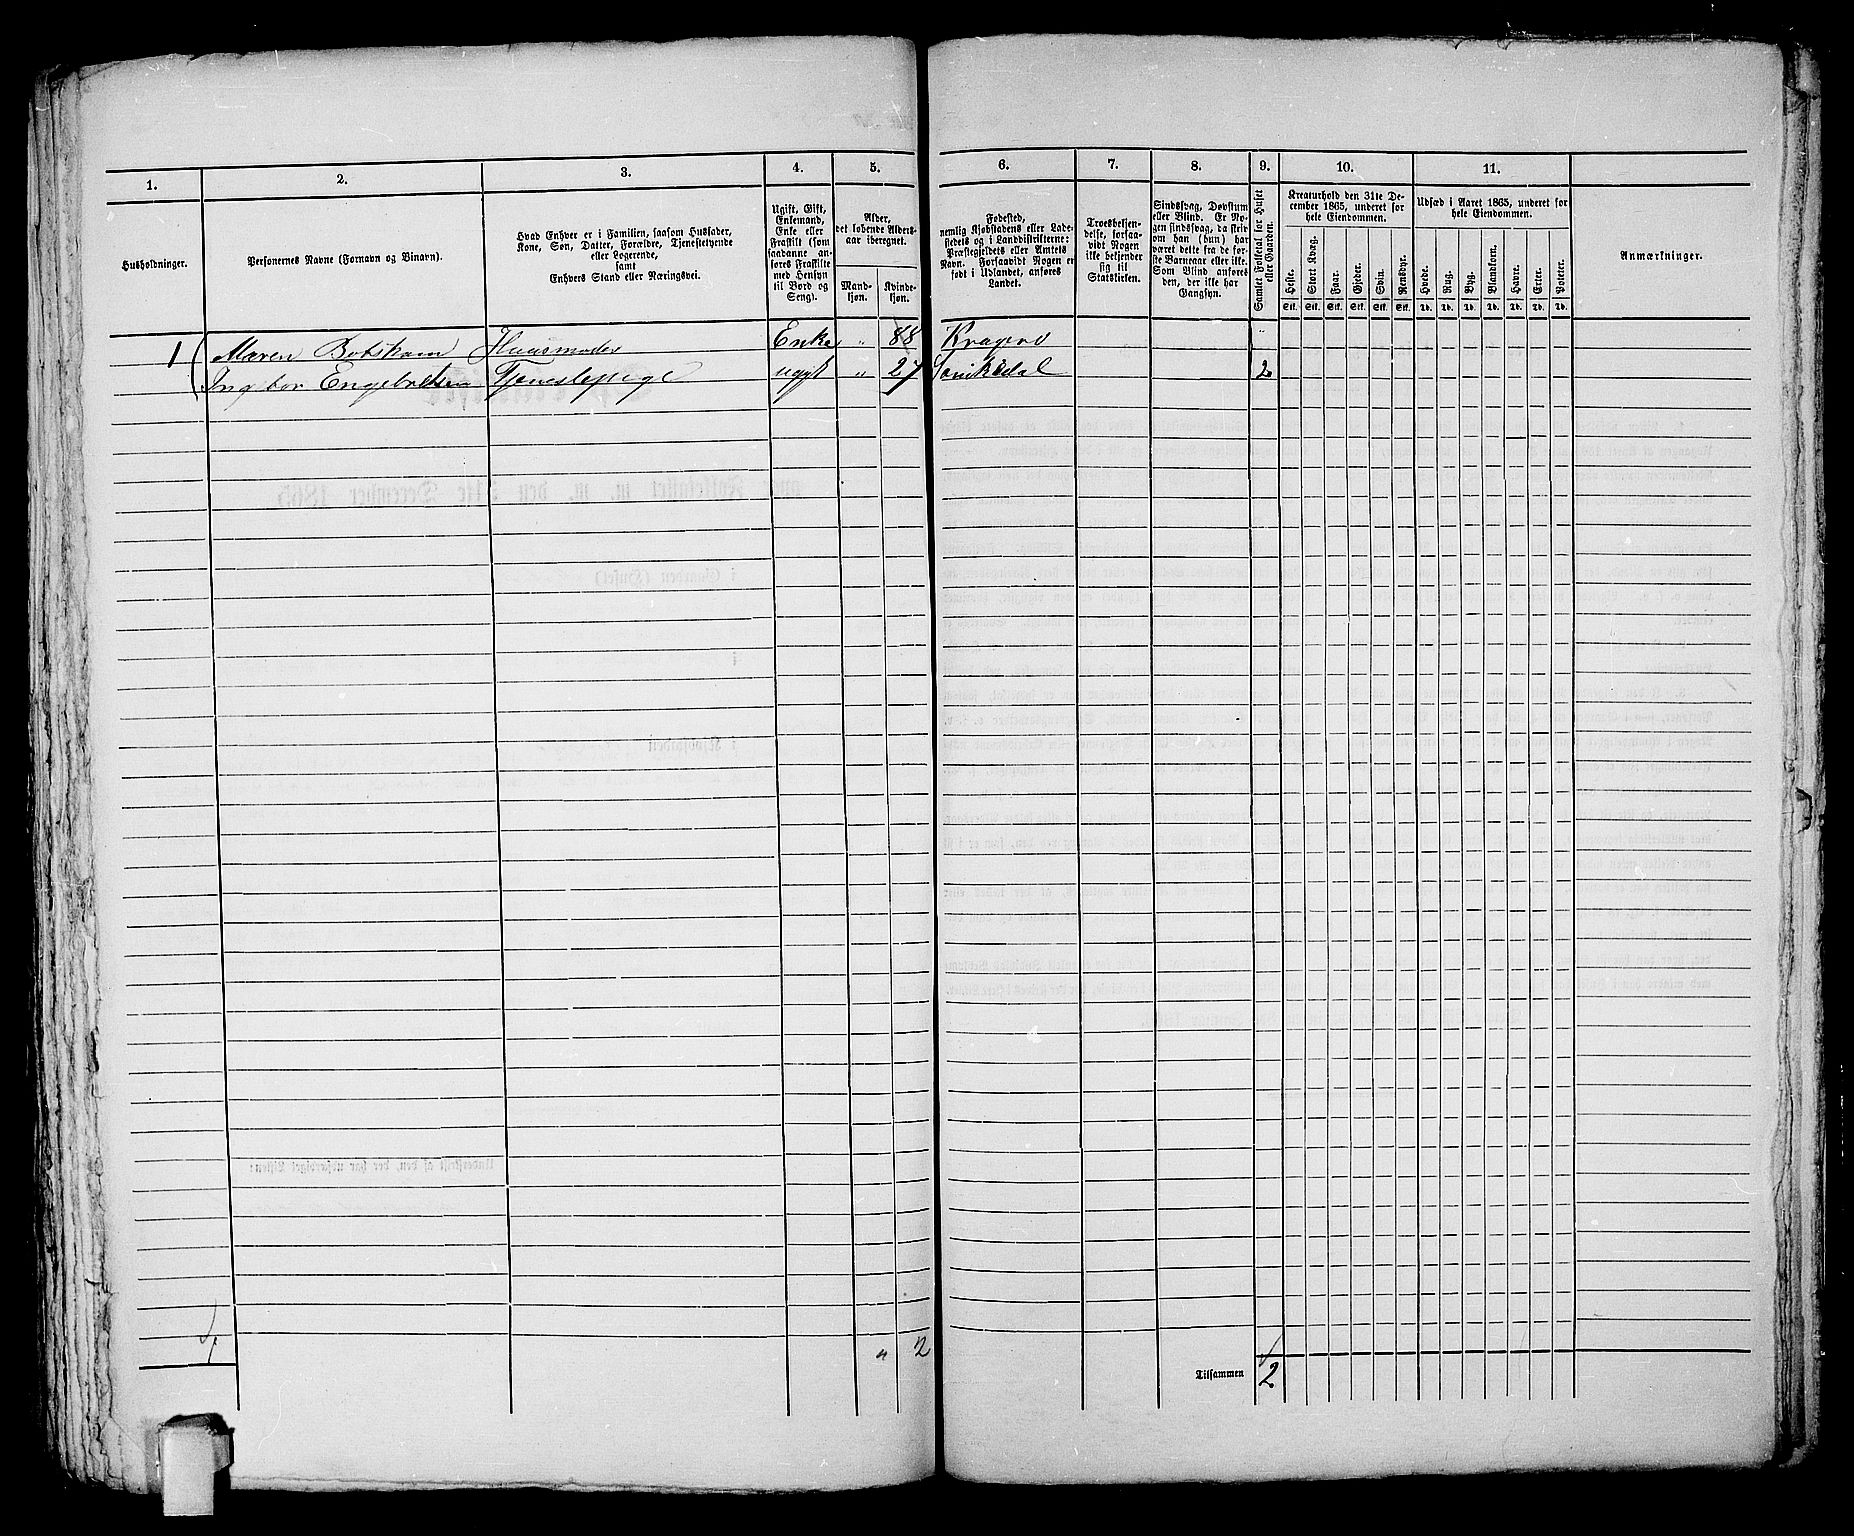 1. 2. 3. 4. 5. 6. 7. 8. 9. 10. 11.
Husholdninger.
Personernes Navne (Fornavn og Binavn).
Hvad Enhver er i Familien, saasom Husfader,
Kone, Søn, Datter, Forældre, Tjenestetyende
eller Logerende,
samt
Enhvers Stand eller Næringsvei.
Ugift, Gift,
Enkemand,
Enke eller
Fraskilt (som
saadanne an-
føres Fraskilte
med Hensyn
til Bord og
Seng).
Alder,
det løbende Alders-
aar iberegnet.
Mand-
kjøn.
Kvinde-
kjøn.
Fødested,
nemlig Kjøbstadens eller Lade-
stedets og i Landdistrikterne:
Præstegjeldets eller Amtets
Navn. Forsaavidt Nogen er
født i Udlandet, anføres
Landet.
Troesbekjen-
delse, forsaa-
vidt Nogen
ikke bekjender
sig til
Statskirken.
Sindssvag, Døvstum
eller Blind. Er No-
gen sindssvag, da skriv
om han (hun) har
været dette fra de før-
ste Barneaar eller ikke.
Som Blind anføres
den, der ikke har
Gangsyn.
Samlet Folketal for Huset
eller Gaarden.
Kreaturhold den 31te De-
cember 1865, underet for
hele Eiendommen.
Heste. Stort Kvæg. Faar. Gjeder. Svin. Rensdyr.
Stk. Stk. Stk. Stk. Stk. Stk.
Udsæd i Aaret 1865, underet for
hele Eiendommen.
Hvede. Rug. Byg. Blandkorn. Havre. Erter. Poteter.
Td. Td. Td. Td. Td. Td. Td.
Anmærkninger.
1 Maren Botskam Huusmoder Enke " 88 Kragerø "
Ingbor Engebretsen Tjenestepige ugift " 27 Sanikedal 2
" 2
Tilsammen 2